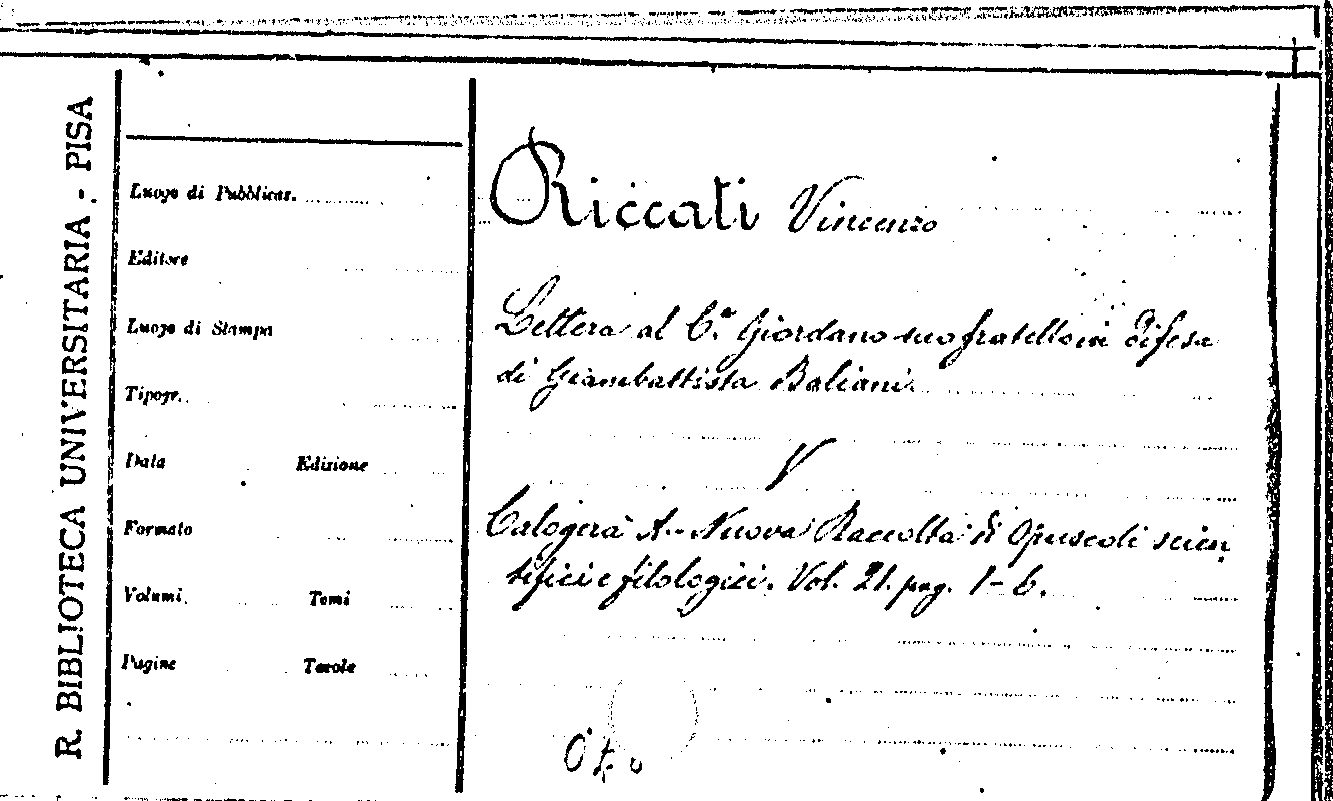 R. BIBLIOTECA UNIVERSITARIA - PISA
Luogo di Pubblicaz.
Editore
Luogo di Stampa
Tipogr.
Data Edizione
Formato
Volumi Tomi
Pagine Tavole
Riccati Vincenzo
Lettera al C.e Giordano suo fratello in difesa
di Giambattista Baliani.
V
Calogerà A. - Nuova Raccolta di Opuscoli scien
tifici e filologici. Vol. 21. pag. 1-6.